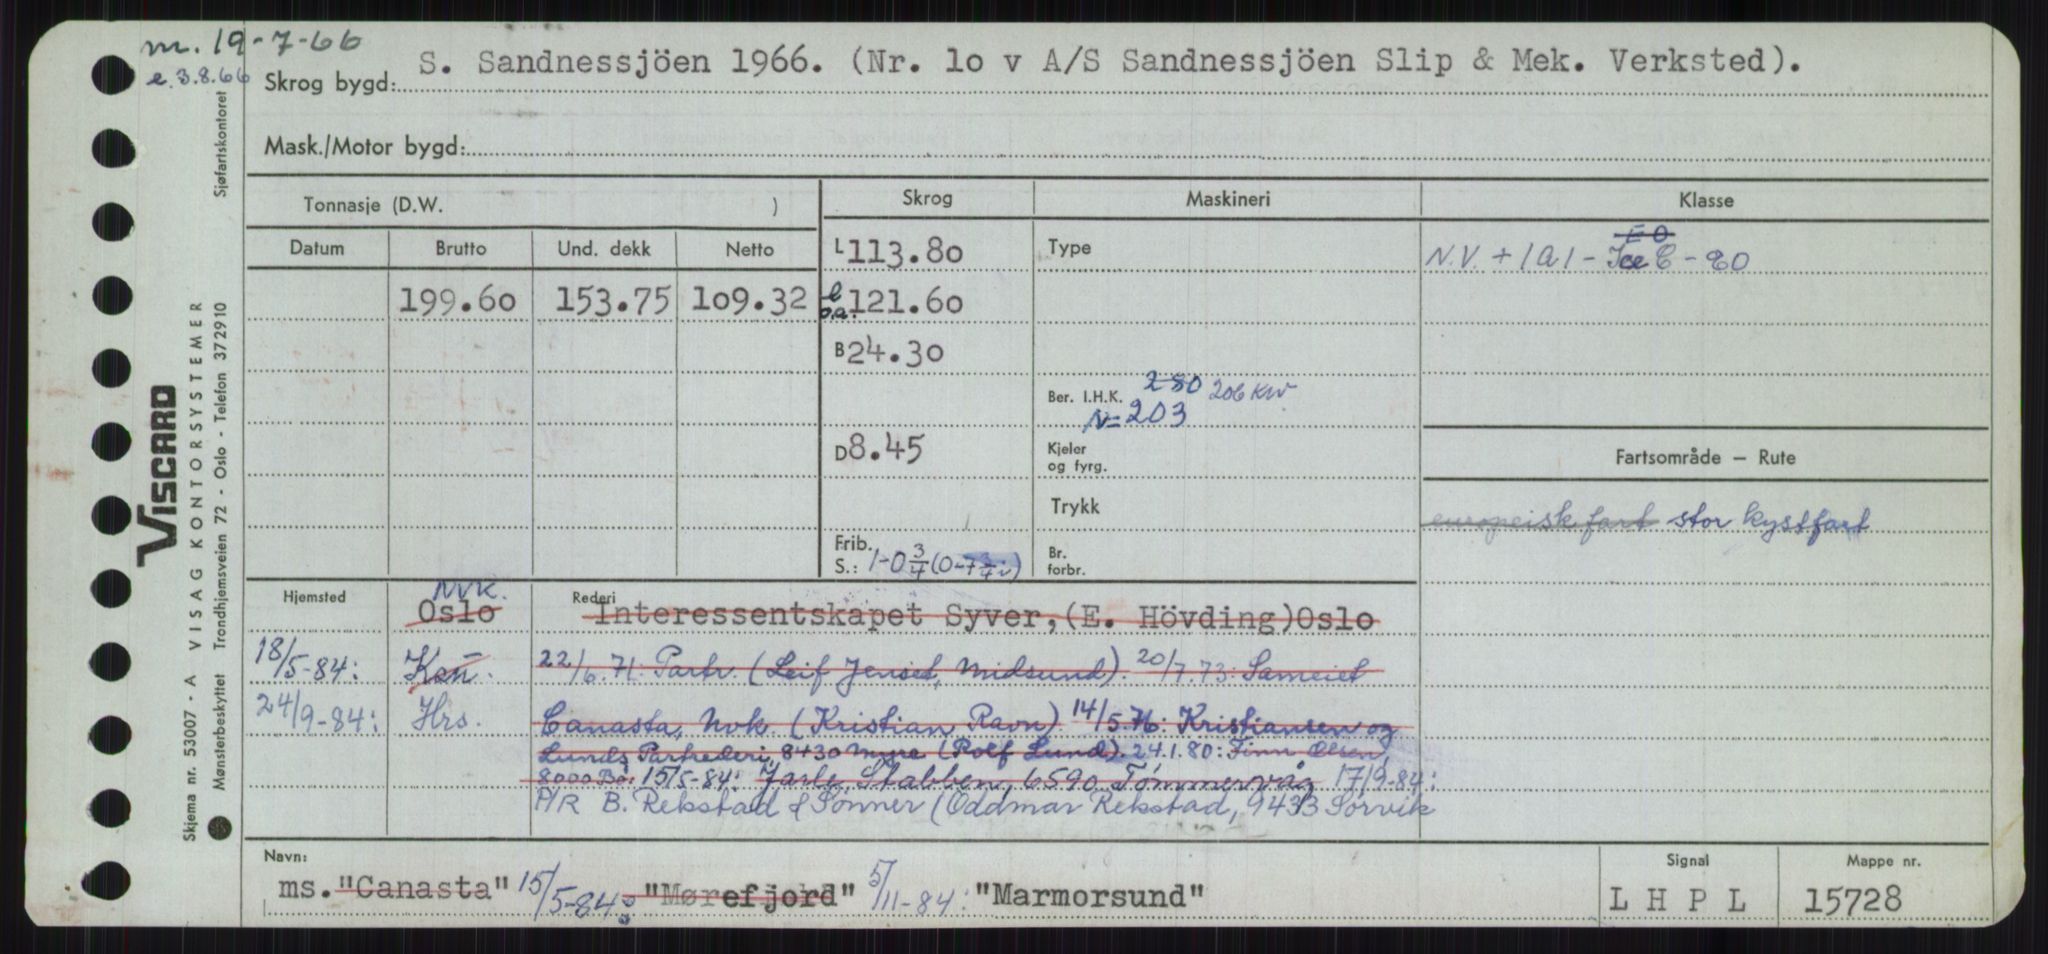 m. 19-7-66
e. 3.8.66
Skrog bygd: S. Sandnessjöen 1966. (Nr. lo v A/S Sandnessjöen Slip & Mek. Verksted).
Mask./Motor bygd:
Tonnasje (D.W. )
Skrog
Maskineri
Klasse
Datum Brutto Und. dekk Netto
199.60 153.75 109.32
L 113.80
l o.a. 121.60
B 24.30
D 8.45
Frib. S.: 1-0 3/4 (0-7 3/4 v)
Type
Ber. I.H.K. 280 206 KW
N=203
Kjeler og fyrg.
Trykk
Br. forbr.
EO
N.V. + 1A1 - Ice C - 80
Fartsområde – Rute
europeisk fart stor kystfart
Hjemsted NVK. Oslo
Rederi Interessentskapet Syver,(E. Hövding)Oslo
18/5-84: Kan. 22/6.71: Partr. (Leif Jenset, Midsund). 20/7.73: Sameiet
24/9-84: Hrs. Canasta, Nvk. (Kristian Ravn) 14/5.76: Kristiansen og
Lunds Partrederi, 8430 Myre (Rolf Lund). 24.1.80: Finn Olsen,
8000 Bo: 15/5-84: Jarle Stabben, 6590 Tömmervåg 17/9-84:
P/R B. Rekstad & Sönner (Oddmar Rekstad, 9433 Sörvik
Navn: ms. "Canasta" 15/5-84: "Mørefjord" 5/11-84: "Marmorsund"
Signal
L H P L
Mappe nr.
15728
VISCARD
Skjema nr. 53007 - A VISAG KONTORSYSTEMER
Mønsterbeskyttet Trondhjemsveien 72 - Oslo - Telefon 372910 Sjøfartskontoret